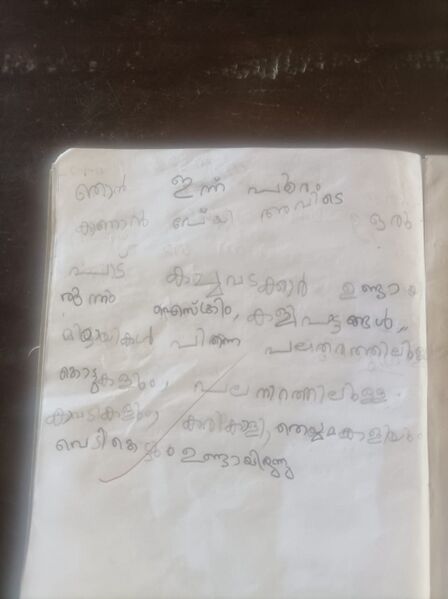 ഞാൻ ഇന്ന് പൂരം
കാണാൻ പോയി അവിടെ ഒരു
പാട് കച്ചവടക്കാർ ഉണ്ടായ
രുന്നു ഐസ്ക്രീം, കളിപട്ടങ്ങൾ,
മിഠായികൾ പിന്നെ പലതരത്തിലുള്ള
പല നിറത്തിലുള്ള
കാവടികളും,
വെടികെട്ടും ഉണ്ടായിരുന്നു